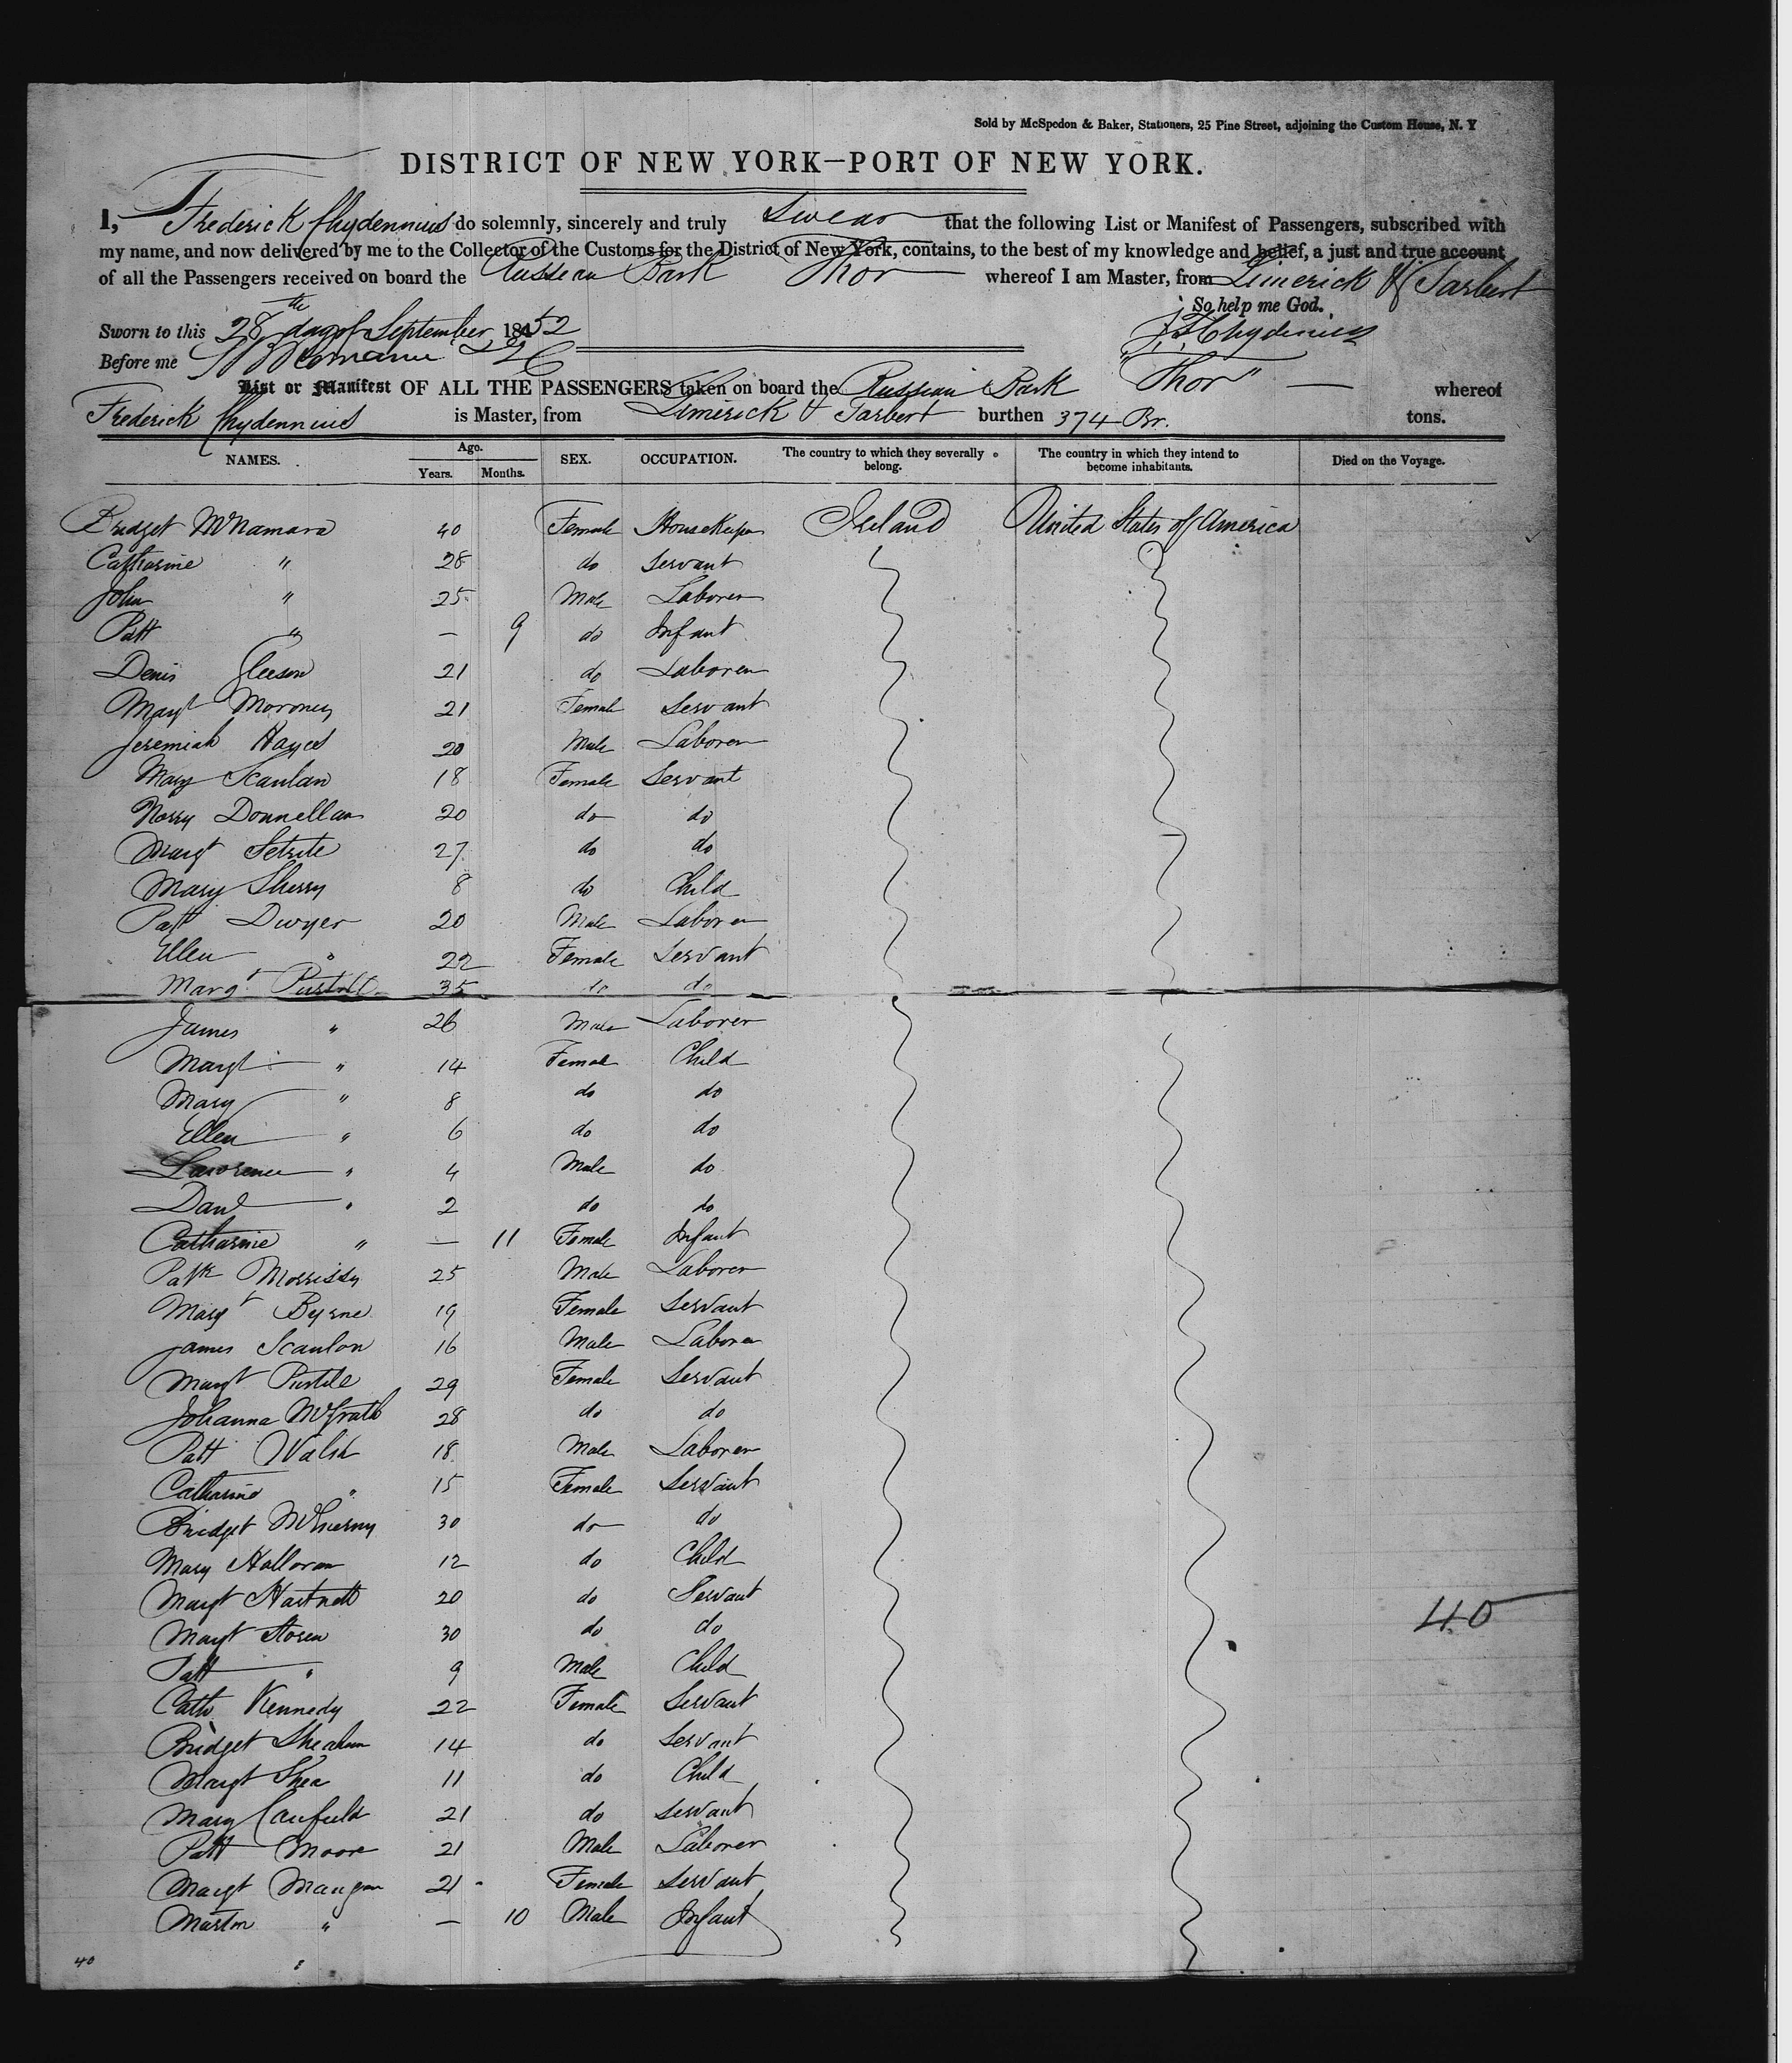 Sold by McSpedon & Baker, Stationers, 25 Pine Street, adjoining the Custom House, N. Y
DISTRICT OF NEW YORK—PORT OF NEW YORK.
I, Frederick Chydennius do solemnly, sincerely and truly Swear that the following List or Manifest of Passengers, subscribed with
my name, and now delivered by me to the Collector of the Customs for the District of New York, contains, to the best of my knowledge and belief, a just and true account
of all the Passengers received on board the Russian Bark Thor whereof I am Master, from Limerick & Tarbert
So help me God.
Sworn to this 28th day of September 1852
Fr. Chydenius
Before me
List or Manifest OF ALL THE PASSENGERS taken on board the Russian Bark "Thor" — whereof
Frederick Chydennius is Master, from Limerick & Tarbert burthen 374 Br. tons.
NAMES. Age. Years. Months. SEX. OCCUPATION. The country to which they severally belong. The country in which they intend to become inhabitants. Died on the Voyage.
Bridget McNamara 40 Female Housekeeper Ireland United States of America
Catharine " 28 do Servant
John " 25 Male Laborer
Patt " — 9 do Infant
Denis Gleeson 21 do Laborer
Margt Moroney 21 Female Servant
Jeremiah Hayes 20 Male Laborer
Mary Scanlan 18 Female Servant
Norry Donnellan 20 do do
Margt 27 do do
Mary Sherry 8 do Child
Patt Dwyer 20 Male Laborer
Ellen " 22 Female Servant
Margt Purtill 35 do do
James " 26 Male Laborer
Margt " 14 Female Child
Mary " 8 do do
Ellen " 6 do do
Lawrence " 4 Male do
Danl " 2 do do
Catharine " — 11 Female Infant
Patk Morrissy 25 Male Laborer
Margt Byrne 19 Female Servant
James Scanlon 16 Male Laborer
Margt Purtile 29 Female Servant
Johanna McGrath 28 do do
Patt Walsh 18 Male Laborer
Catharine " 15 Female Servant
Bridget 30 do do
Mary Halloran 12 do Child
Margt Hartnett 20 do Servant
Margt Storen 30 do do
40
Patt " 9 Male Child
Cath Kennedy 22 Female Servant
Bridget Sheahan 14 do Servant
Margt Shea 11 do Child
Mary Caufield 21 do Servant
Patt Moore 21 Male Laborer
Margt Mangan 21 Female Servant
Martin " — 10 Male Infant
40